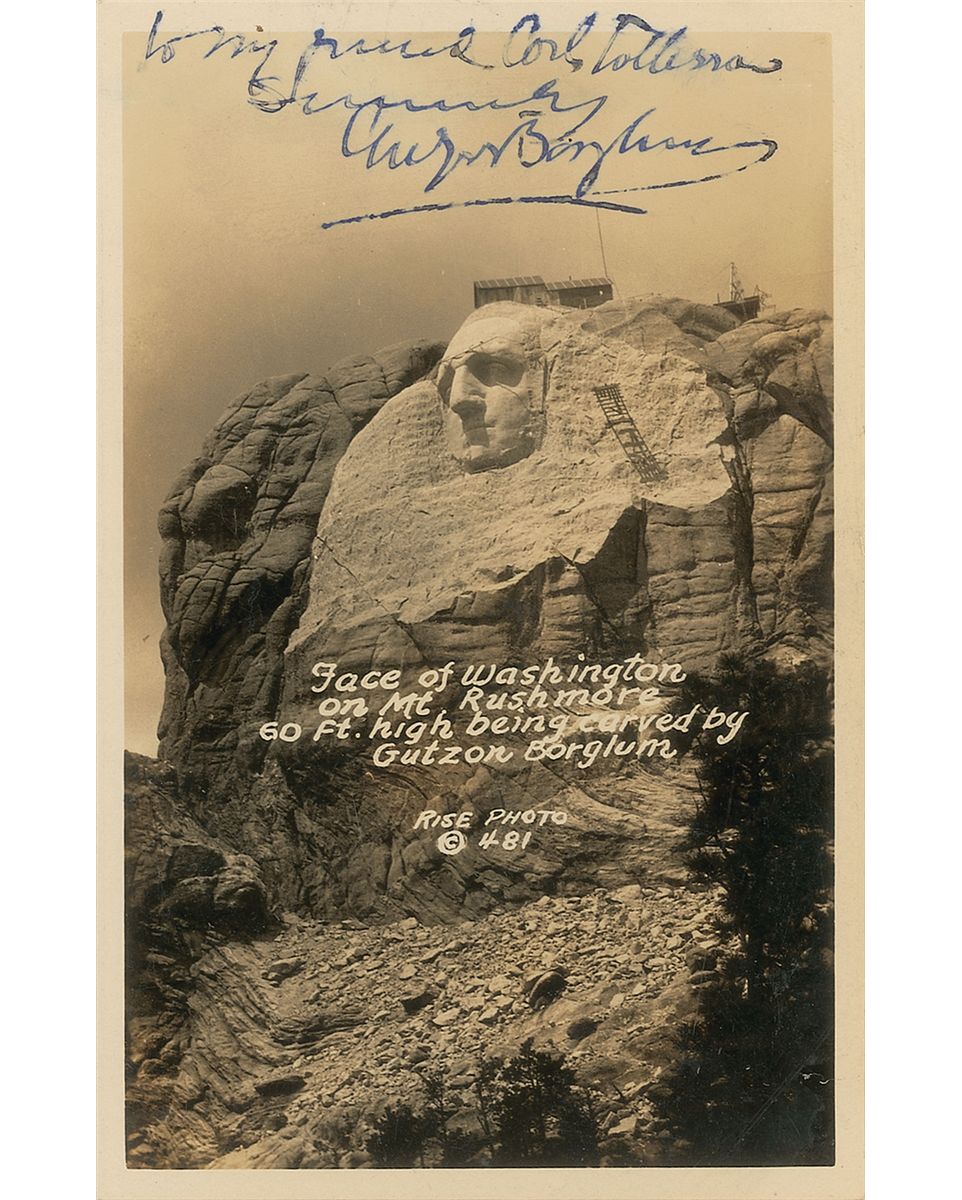 to my friend Carl
Sincerely
Gutzon Borglum
Face of Washington
on Mt. Rushmore
60 Ft. high being carved by
Gutzon Borglum
RISE PHOTO
© 481